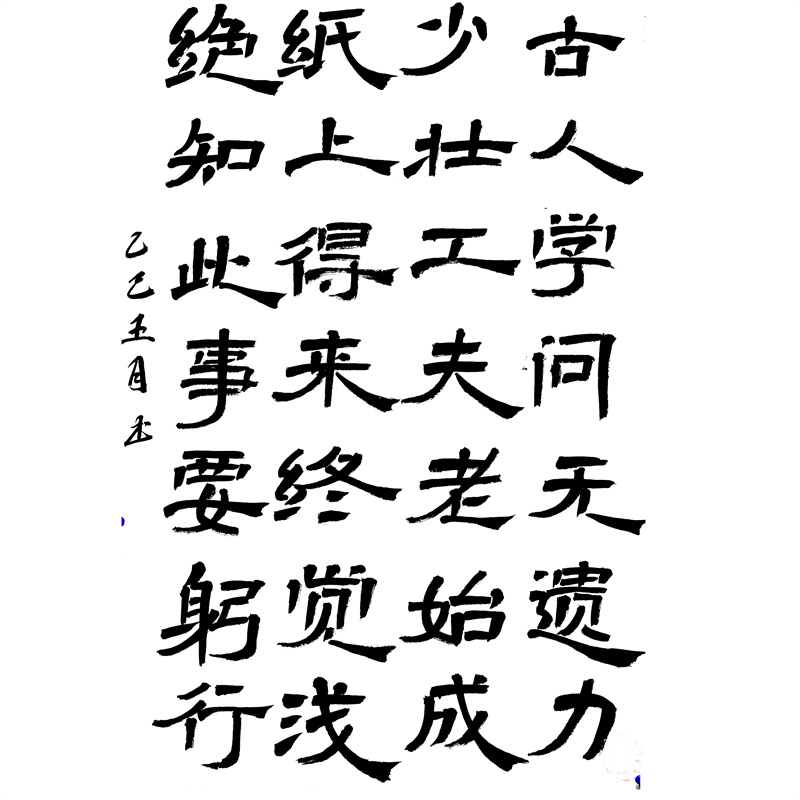 古人学问无遗力
少壮工夫老始成
纸上得来终觉浅
绝知此事要躬行
乙巳五月